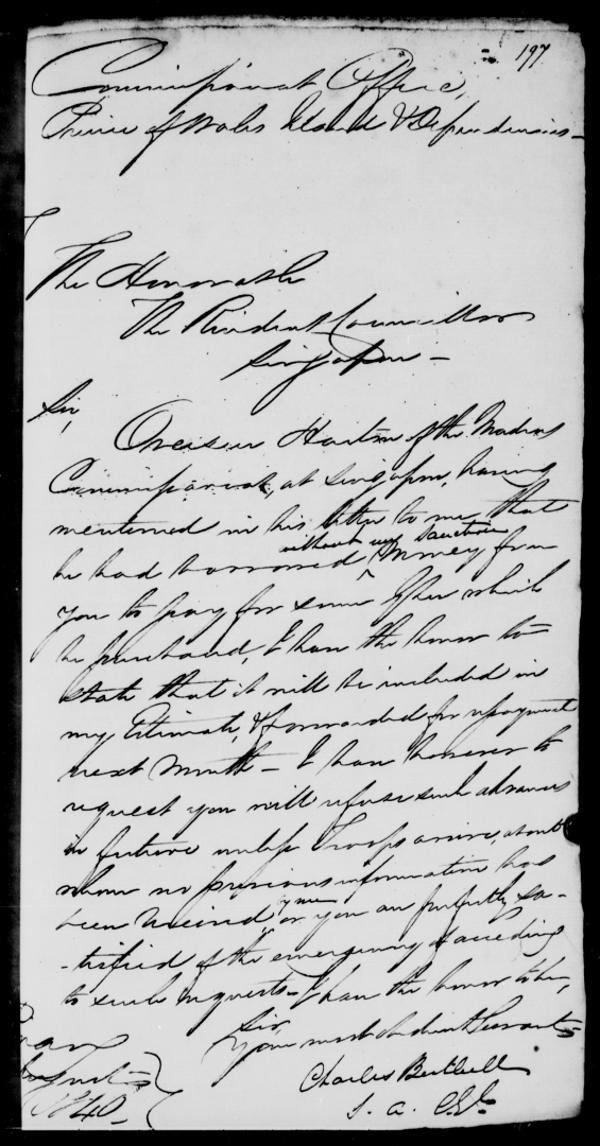 197
Commissariat Office,
Prince of Wales Island & Dependencies -
The Honorable
The Resident Councillor
Singapore -
Sir,
Overseer of the Madras
Commissariat, at Singapore, having
mentioned in his letter to me, that
he had borrowed ^ without my sanction money from
you to pay for some which
he purchased, I have the honor to
state that it will be included in
my Estimate, & forwarded for repayment
next Month - I have however to
request you will refuse such advances
in future unless Troops arrive, about
whom no previous information has
been received by me or you are perfectly sa-
-tisfied of the emergency of acceding
to such requests - I have the honor to be,
Sir,
Your most obedient Servant
Charles
S. A. C. Gl.
1840